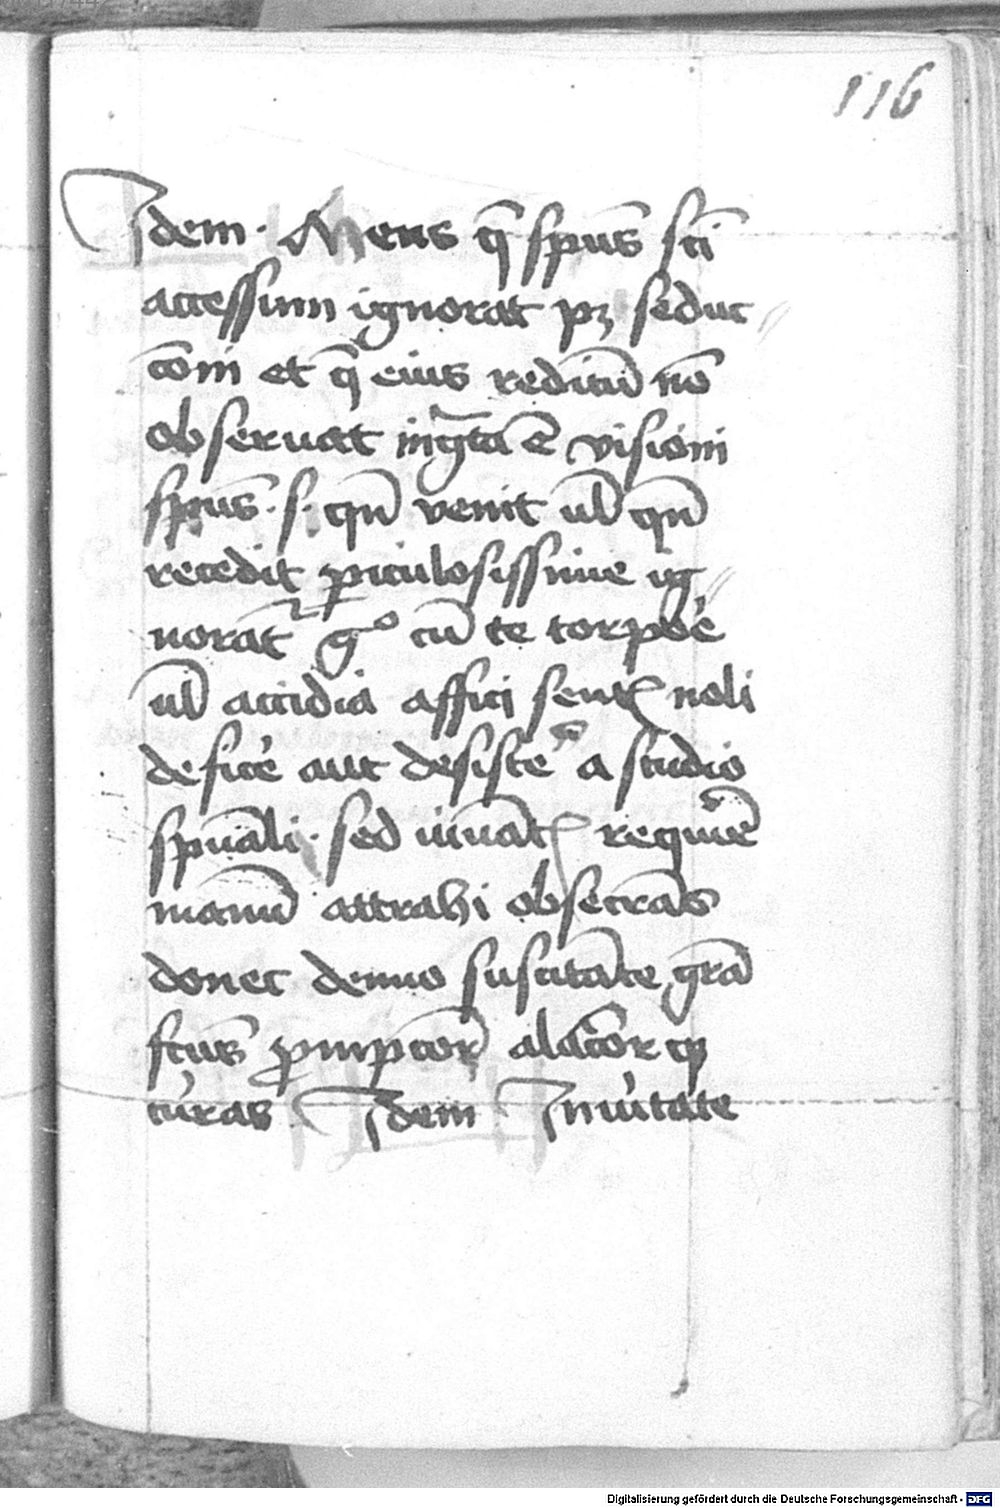 116
Idem · Mens q̄ spūs sc̄i
accessum ignorat pꝫ seduc
c̄oni et q̄ eius reditū nō
obseruat ingͣta ē visioni
spūs · s · qn̄ venit ul̄ qn̄
recedit ꝑiculosissime ig
norat gͦ cū te torpōe
ul̄ accidia affici senꝭ noli
deficē aut desistē a studio
spūali · sed iuuatꝭ requīe
manū attrahi obsecrās
donec denuo suscitāte grā
fctūs ꝓmptior alācior qꝫ
curas Idem Inuitate
Digitalisierung gefördert durch die Deutsche Forschungsgemeinschaft - DFG